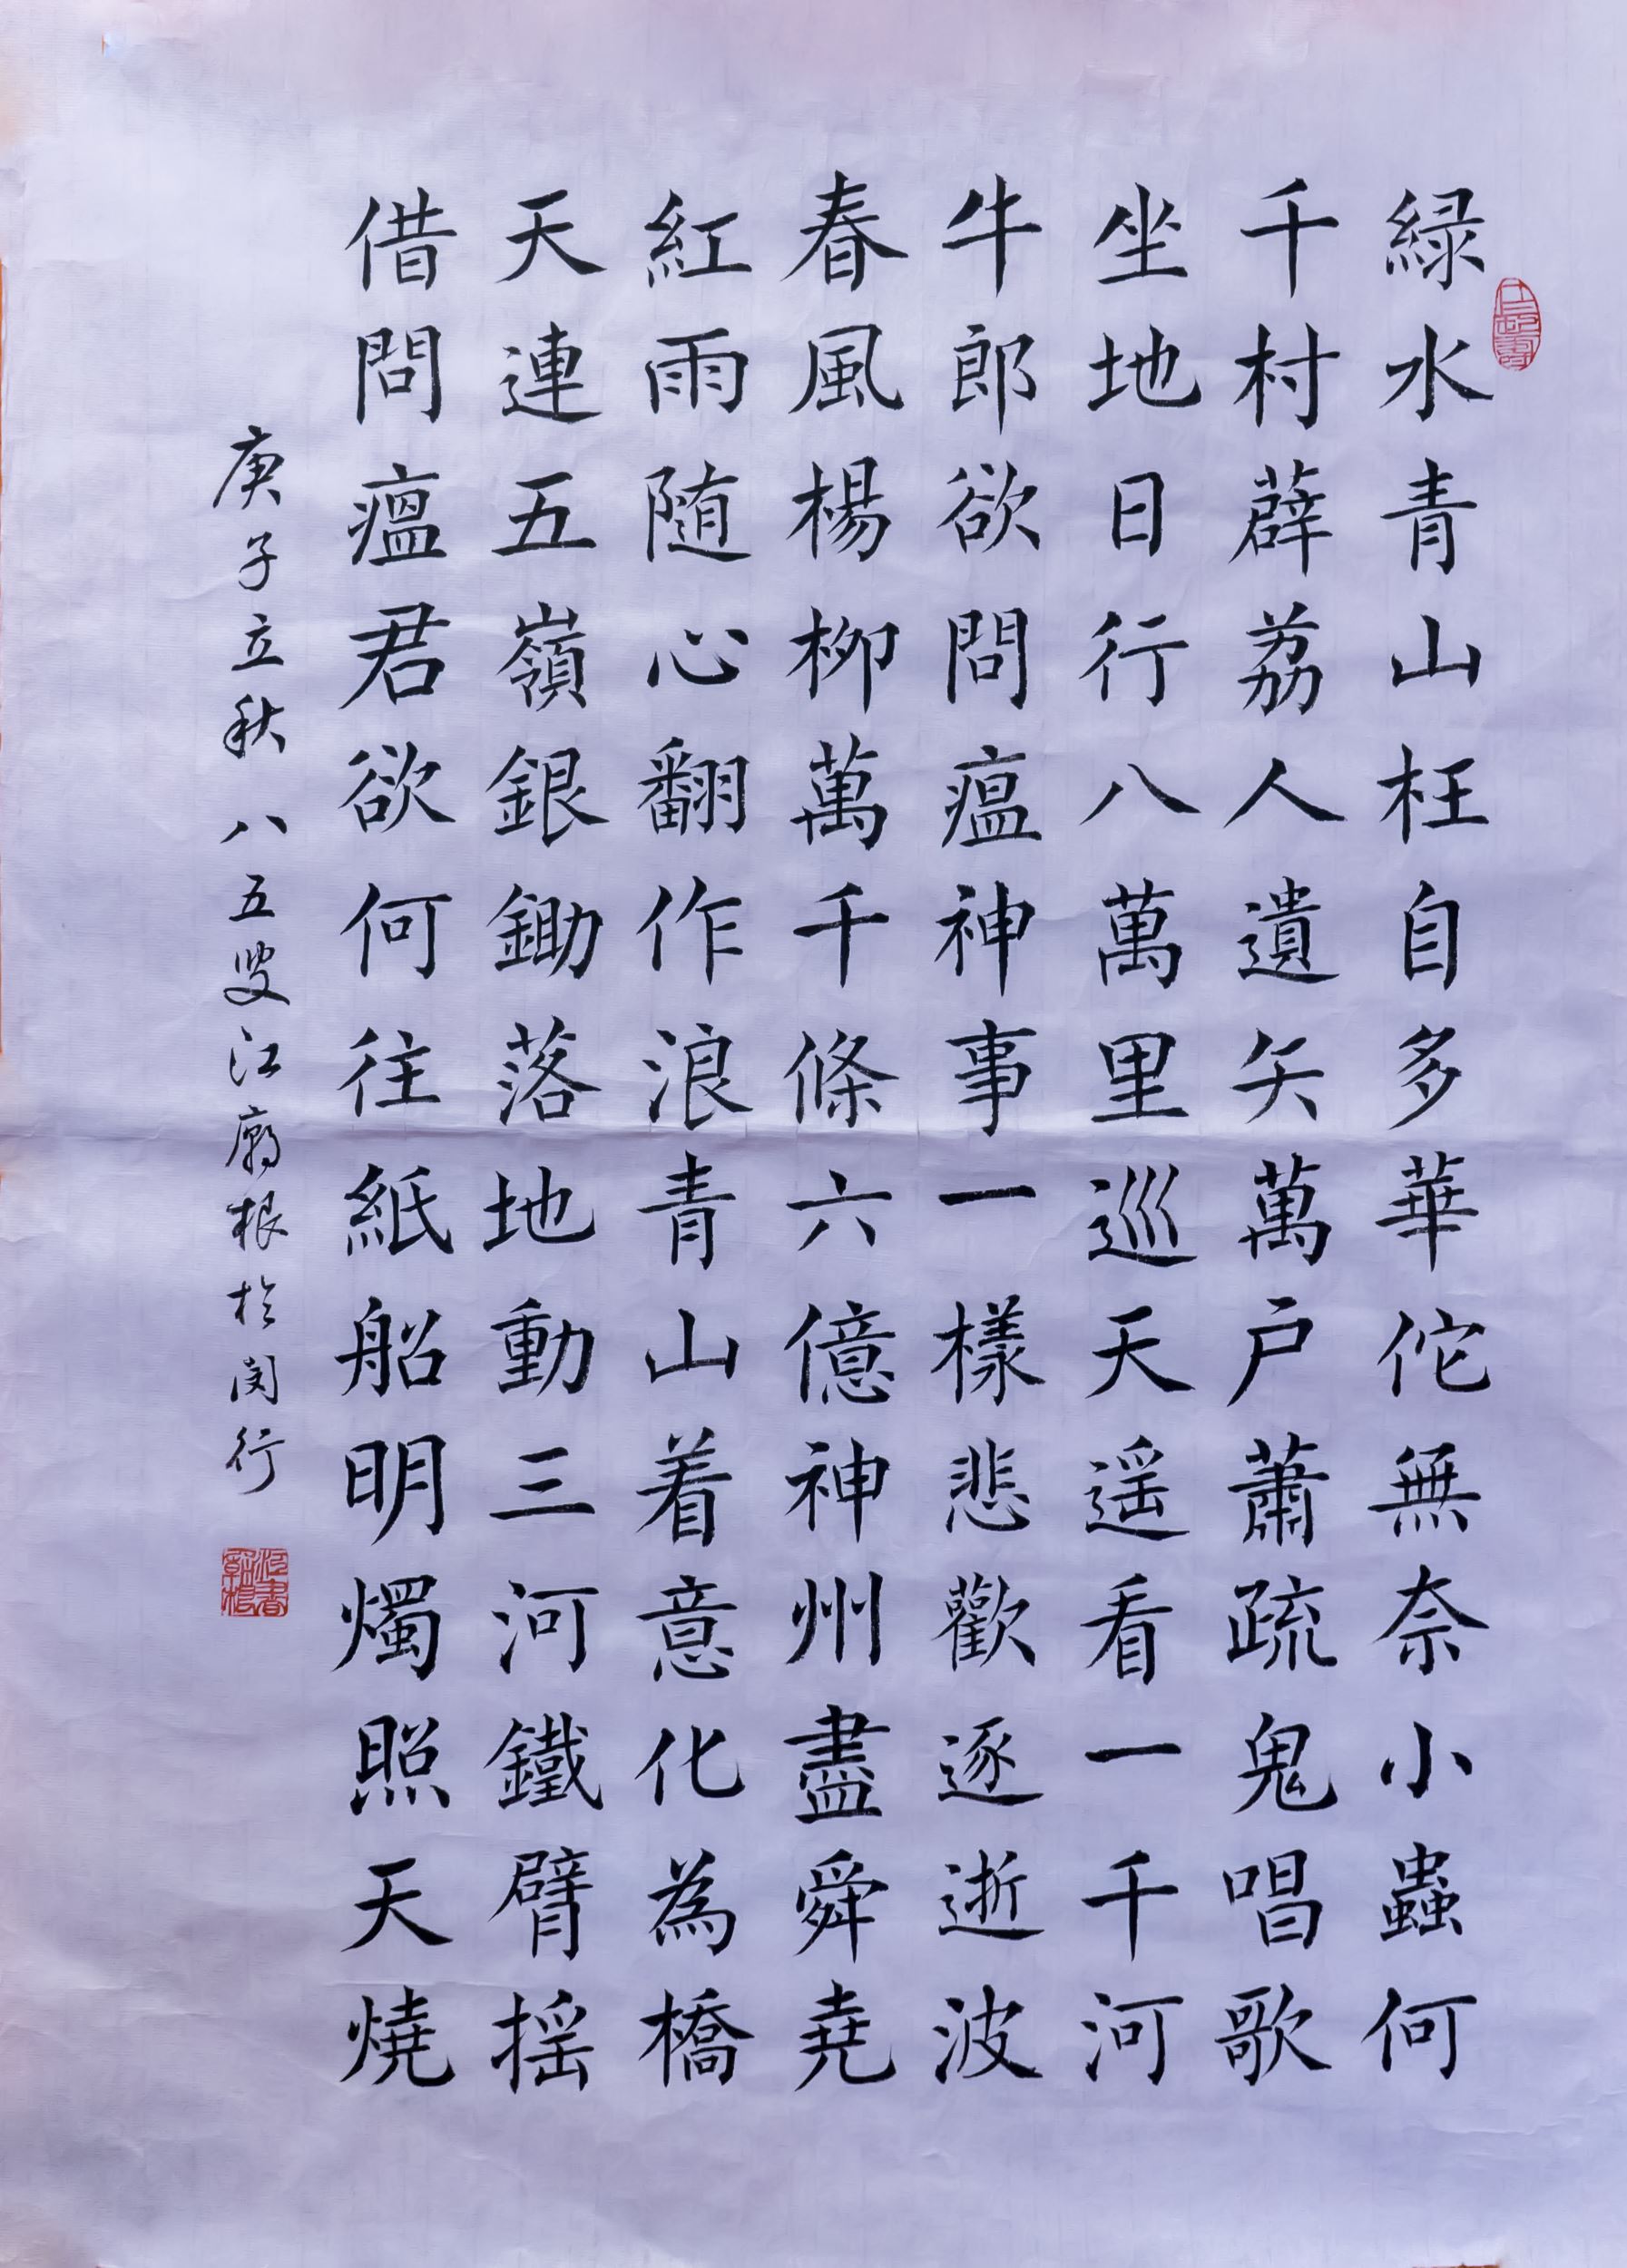 緑水青山枉自多華佗無奈小蟲何
千村薜荔人遺矢萬户蕭疏鬼唱歌
坐地日行八萬里巡天遥看一千河
牛郎欲問瘟神事一樣悲歡逐逝波
春風楊柳萬千條六億神州盡舜堯
紅雨随心翻作浪青山着意化為橋
天連五嶺銀鋤落地動三河鐵臂摇
借問瘟君欲何往紙船明燭照天燒
庚子立秋八五叟江廟根於闵行